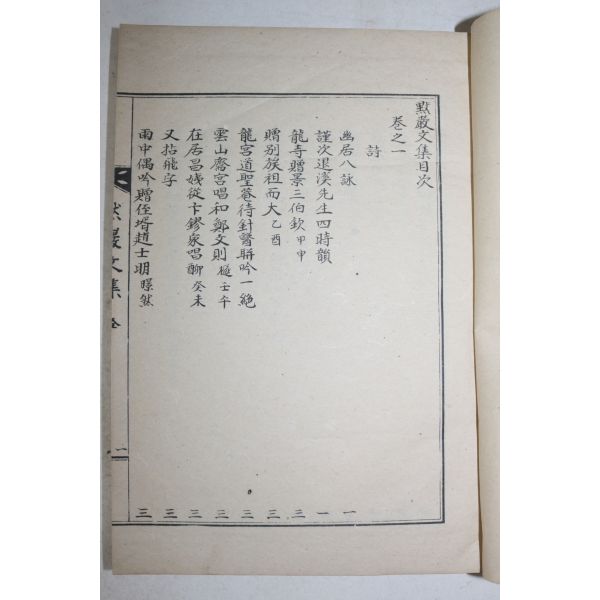 默巖文集目次
卷之一
詩
幽居八詠 一
謹次退溪先生四時韻 一
龍寺贈景三伯欽甲申 二
贈別族祖而大乙酉 三
龍宮道聖菴待針醫聯吟一絶 三
雲山齋宮唱和鄭文則樾壬午 三
在居昌姨從卞鏐家唱酬癸未 三
又拈飛字 三
雨中偶吟贈侄壻趙士明暻然 三
默巖文集 全 一